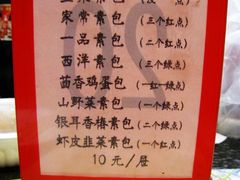 家常素包（三个红点）
一品素包（二个红点）
西洋素包（三个绿点）
茴香鸡蛋包（一红一绿点）
山野菜素包（一个绿点）
银耳香椿素包（二个绿点）
虾皮韭菜素包（一个红点）
10元/屉